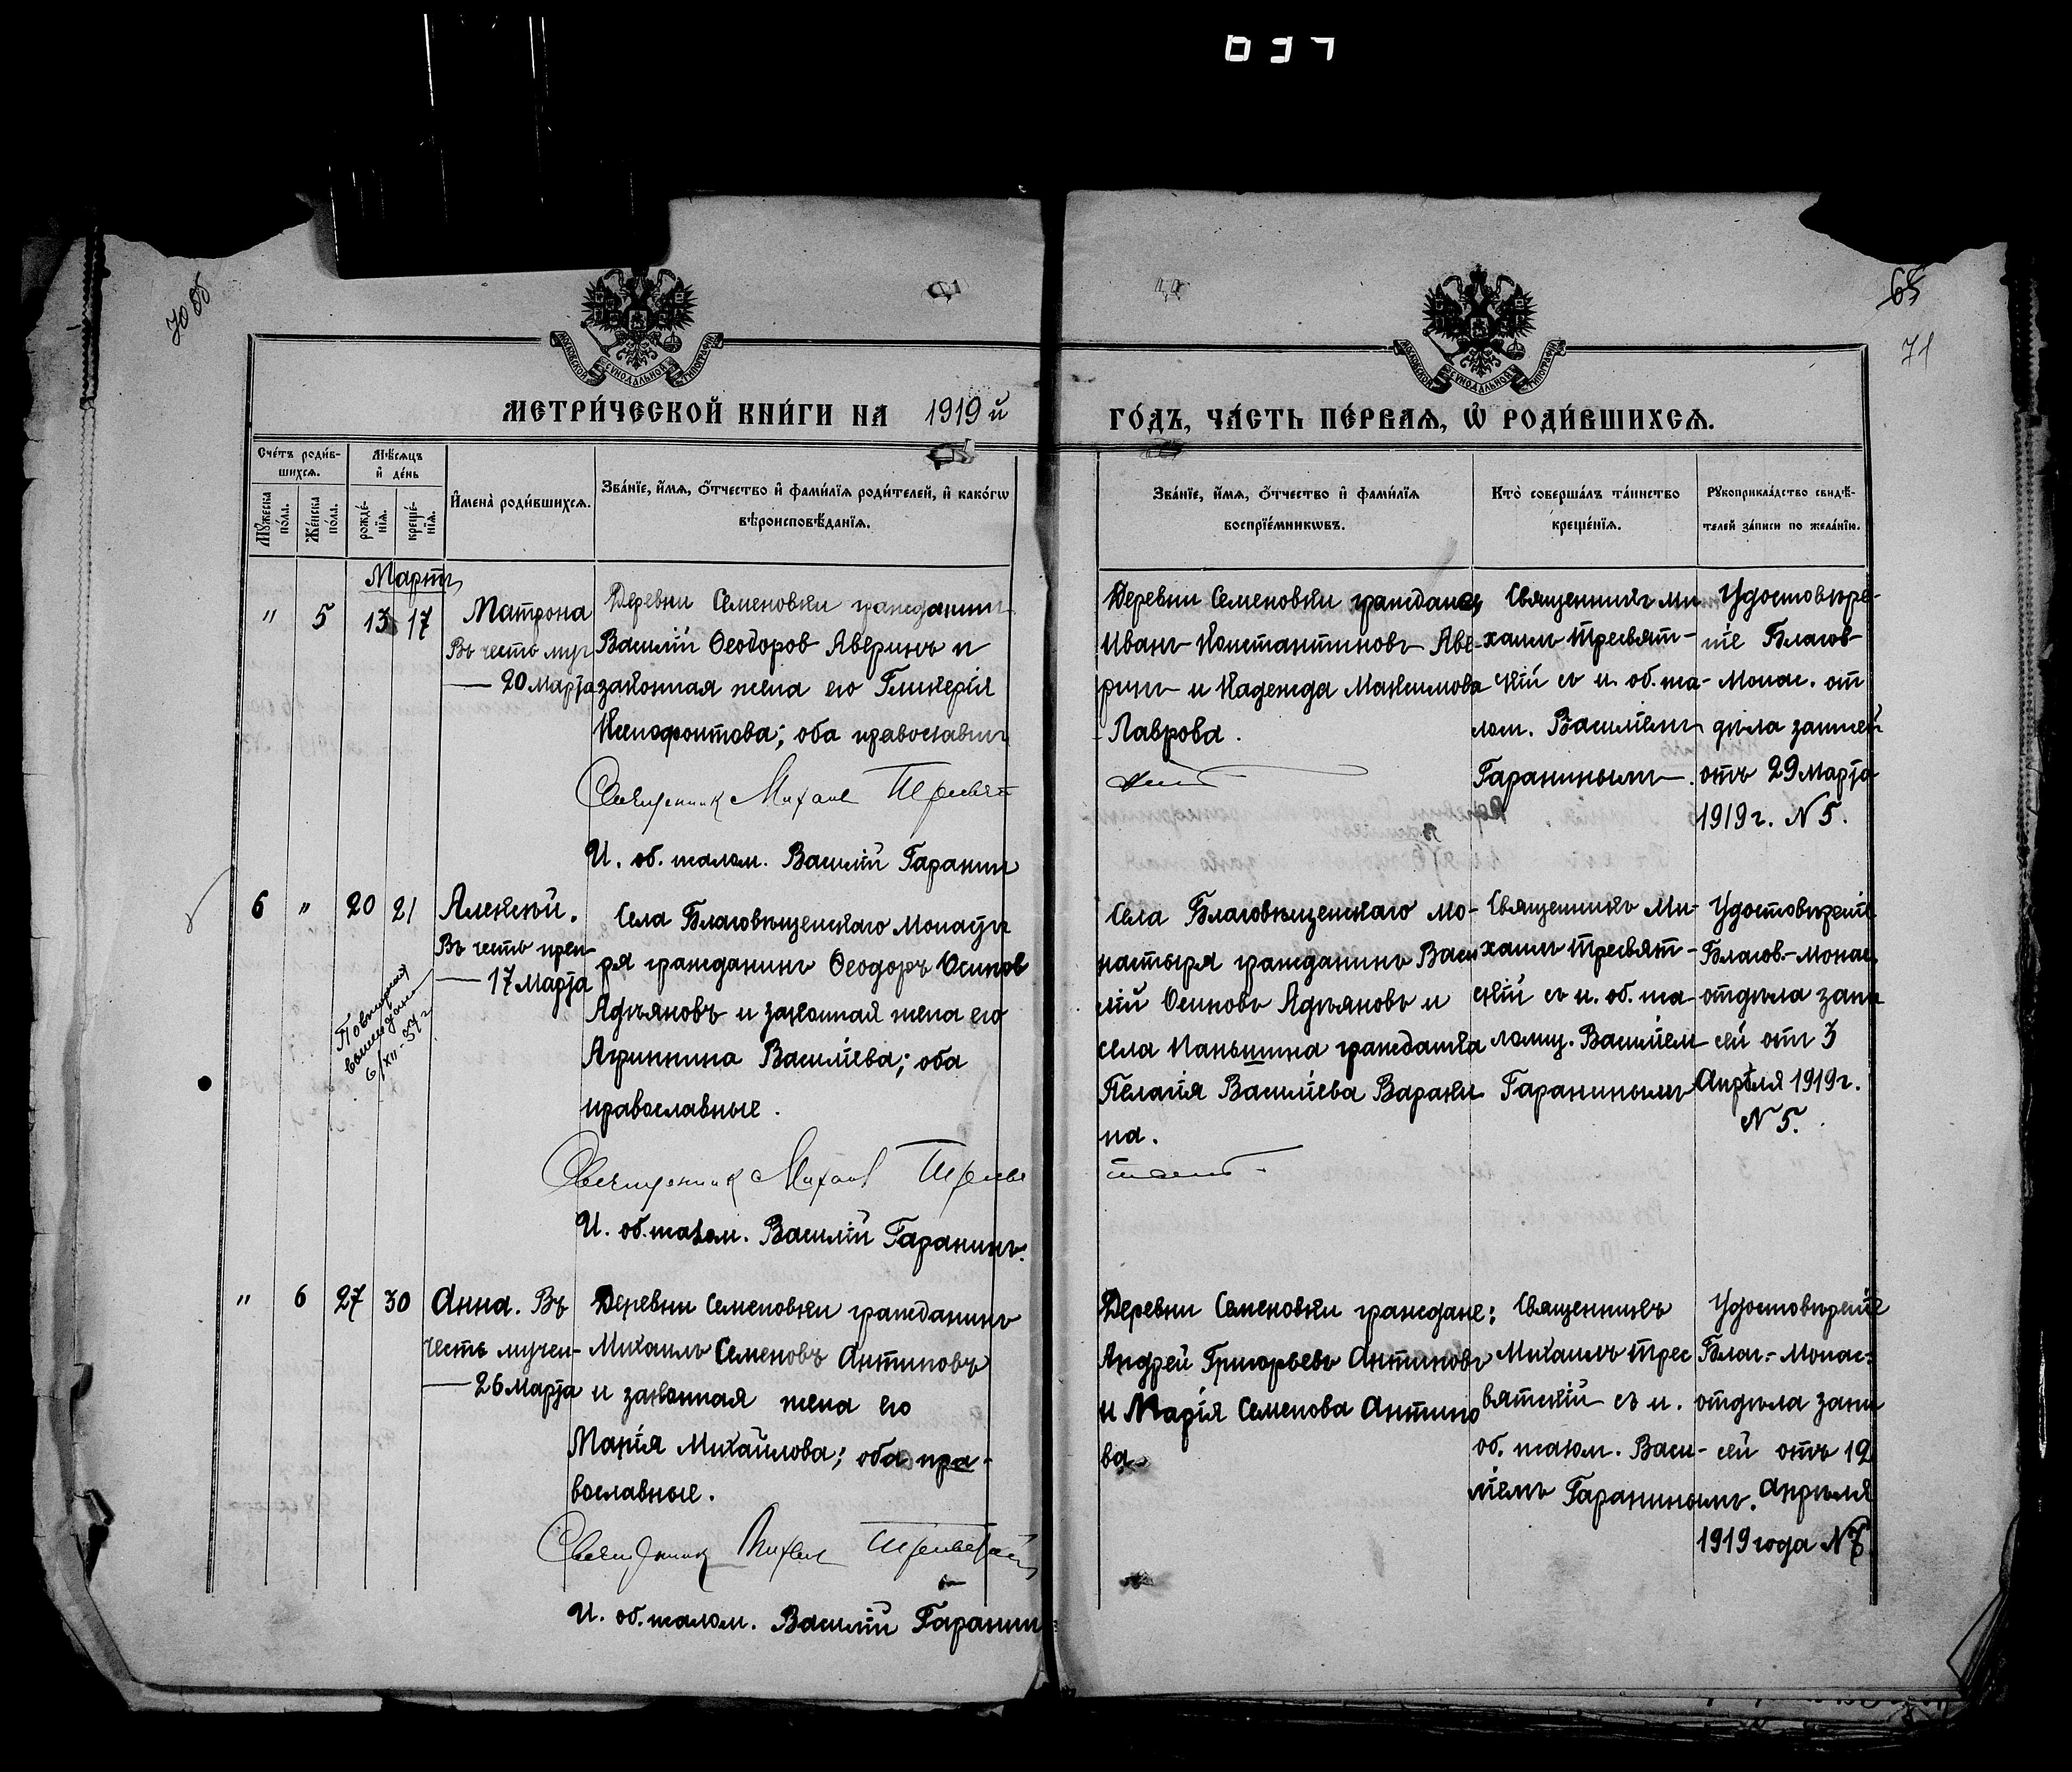 037
70 об
65
71
МОСКОВСКОЙ СѴНОДАЛЬНОЙ ТИПОГРАФІИ
МОСКОВСКОЙ СѴНОДАЛЬНОЙ ТИПОГРАФІИ
МЕТРИ́ЧЕСКОЙ КНИ́ГИ НА 1919 й
ГО́ДЪ, ЧА́СТЬ ПЕ́РВАЯ, Ѡ҆ РОДИ́ВШИХСЯ.
Сче́тъ роди́в-
шихся.
Мꙋ́жеска
по́ла.
Же́нска
по́ла.
Мѣ́сяцъ
и҆ де́нь
рожде́-
нїя.
креще́-
нїя.
И҆мена̀ роди́вшихся.
Зва́нїе, и҆́мя, ѻ҆́тчество и҆ фами́лїя роди́телей, и҆ како́гѡ
вѣроисповѣ́данїя.
Зва́нїе, и҆́мя, ѻ҆́тчество и҆ фами́лїя
воспрїе́мникѡвъ.
Кто̀ соверша́лъ та́инство
креще́нїя.
Рꙋкоприкла́дство свидѣ́-
телей за́писи по жела́нїю.
Мартъ
" 5 13 17
Матрона
Въ честь муч
— 20 Марта
Деревни Семеновки гражданинъ
Василій Ѳеодоров Аверинъ и
законная жена его Гликерія
Ксенофонтова; оба православны
Священник Михаил Тресвят
И. об. псалом. Василій Гаранин
Деревни Семеновки граждане
Иванъ Константиновъ Аве-
ринъ и Надежда Максимова
Лаврова.
Священникъ Ми
хаилъ Тресвят-
скій съ и. об. пса-
лом. Василіемъ
Гаранинымъ.
Удостовѣре-
ніе Благов-
Монас. от
дѣла записей
отъ 29 Марта
1919 г. N 5.
6 " 20 21
Алексѣй.
Въ честь преп-
— 17 Марта
Повторный
выписдана
6/XII-57 г
Села Благовѣщенскаго Монасты
ря гражданинъ Ѳеодоръ Осипов
Адъяновъ и законная жена его
Агриппина Василіева; оба
православные.
Священник Михаил Тресвя
И. об. псалом. Василій Гаранинъ.
Села Благовѣщенскаго Мо-
настыря гражданинъ Васи
лій Осиповъ Адъяновъ и
села Паньшина гражданка
Пелагія Василіева Варакси
на.
Священникъ Ми-
хаилъ Тресвят-
скій съ и. об. пса-
ломщ. Василіем
Гаранинымъ
Удостовѣреніе
Благов.-Монас
отдѣла запи
сей отъ 3
Апрѣля 1919 г.
N 5.
" 6 27 30
Анна. Въ
честь мучен-
— 26 Марта
Деревни Семеновки гражданинъ
Михаилъ Семеновъ Антиповъ
и законная жена его
Марія Михайлова; оба пра-
вославные.
Священник Михаил Тресвятскій
И. об. псалом. Василій Гаранин
Деревни Семеновки граждане:
Андрей Григорьевъ Антиповъ
и Марія Семенова Антипо
ва
Священникъ
Михаилъ Трес
вятскій съ и.
об. псалом. Васи-
ліемъ Гаранинымъ.
Удостовѣреніе
Благ.-Монас-
отдѣла запи
сей отъ 12
Апрѣля
1919 года N 7